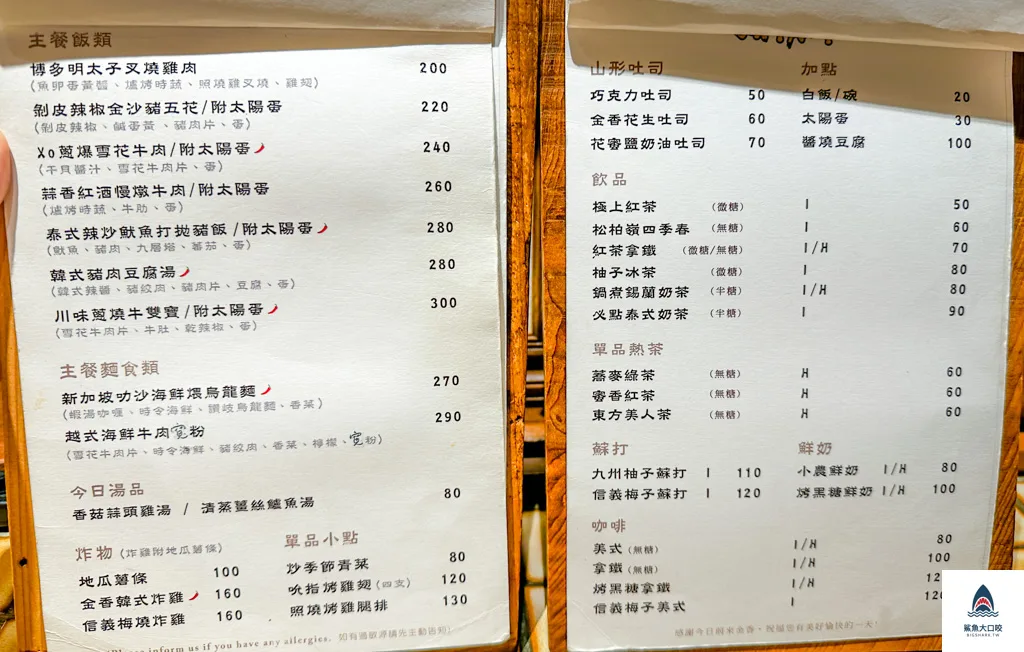 主餐飯類
博多明太子叉燒雞肉 200
(魚卵蛋黃醬、爐烤時蔬、照燒雞叉燒、雞翅)
剝皮辣椒金沙豬五花/附太陽蛋 220
(剝皮辣椒、鹹蛋黃、豬肉片、蛋)
Xo蔥爆雪花牛肉/附太陽蛋 240
(干貝醬汁、雪花牛肉片、蛋)
蒜香紅酒慢燉牛肉/附太陽蛋 260
(爐烤時蔬、牛肋、蛋)
泰式辣炒魷魚打拋豬飯/附太陽蛋 280
(魷魚、豬肉、九層塔、蕃茄、蛋)
韓式豬肉豆腐湯 280
(韓式辣醬、豬絞肉、豬肉片、豆腐、蛋)
川味蔥燒牛雙寶/附太陽蛋 300
(雪花牛肉片、牛肚、乾辣椒、蛋)
主餐麵食類
新加坡叻沙海鮮煨烏龍麵 270
(蝦湯咖哩、時令海鮮、讚岐烏龍麵、香菜)
越式海鮮牛肉寬粉 290
(雪花牛肉片、時令海鮮、豬絞肉、香菜、檸檬、寬粉)
今日湯品
香菇蒜頭雞湯 / 清蒸薑絲鱸魚湯 80
炸物 (炸雞附地瓜薯條)
地瓜薯條 100
金香韓式炸雞 160
信義梅燒炸雞 160
單品小點
炒季節青菜 80
吮指烤雞翅(四支) 120
照燒烤雞腿排 130
inform us if you have any allergies. 如有過敏源請先主動告知)
山形吐司
巧克力吐司 50
金香花生吐司 60
花蜜鹽奶油吐司 70
加點
白飯/碗 20
太陽蛋 30
醬燒豆腐 100
飲品
極上紅茶 (微糖) I 50
松柏嶺四季春 (無糖) I 60
紅茶拿鐵 (微糖/無糖) I/H 70
柚子冰茶 (微糖) I 80
鍋煮錫蘭奶茶 (半糖) I/H 80
必點泰式奶茶 (半糖) I 90
單品熱茶
蕎麥綠茶 (無糖) H 60
蜜香紅茶 (無糖) H 60
東方美人茶 (無糖) H 60
蘇打
九州柚子蘇打 I 110
信義梅子蘇打 I 120
鮮奶
小農鮮奶 I/H 80
烤黑糖鮮奶 I/H 100
咖啡
美式 (無糖) I/H 80
拿鐵 (無糖) I/H 100
烤黑糖拿鐵 I/H
信義梅子美式 I
感謝今日您來金香、祝福您有美好愉快的一天!
鯊魚大口咬
BIGSHARK.TW